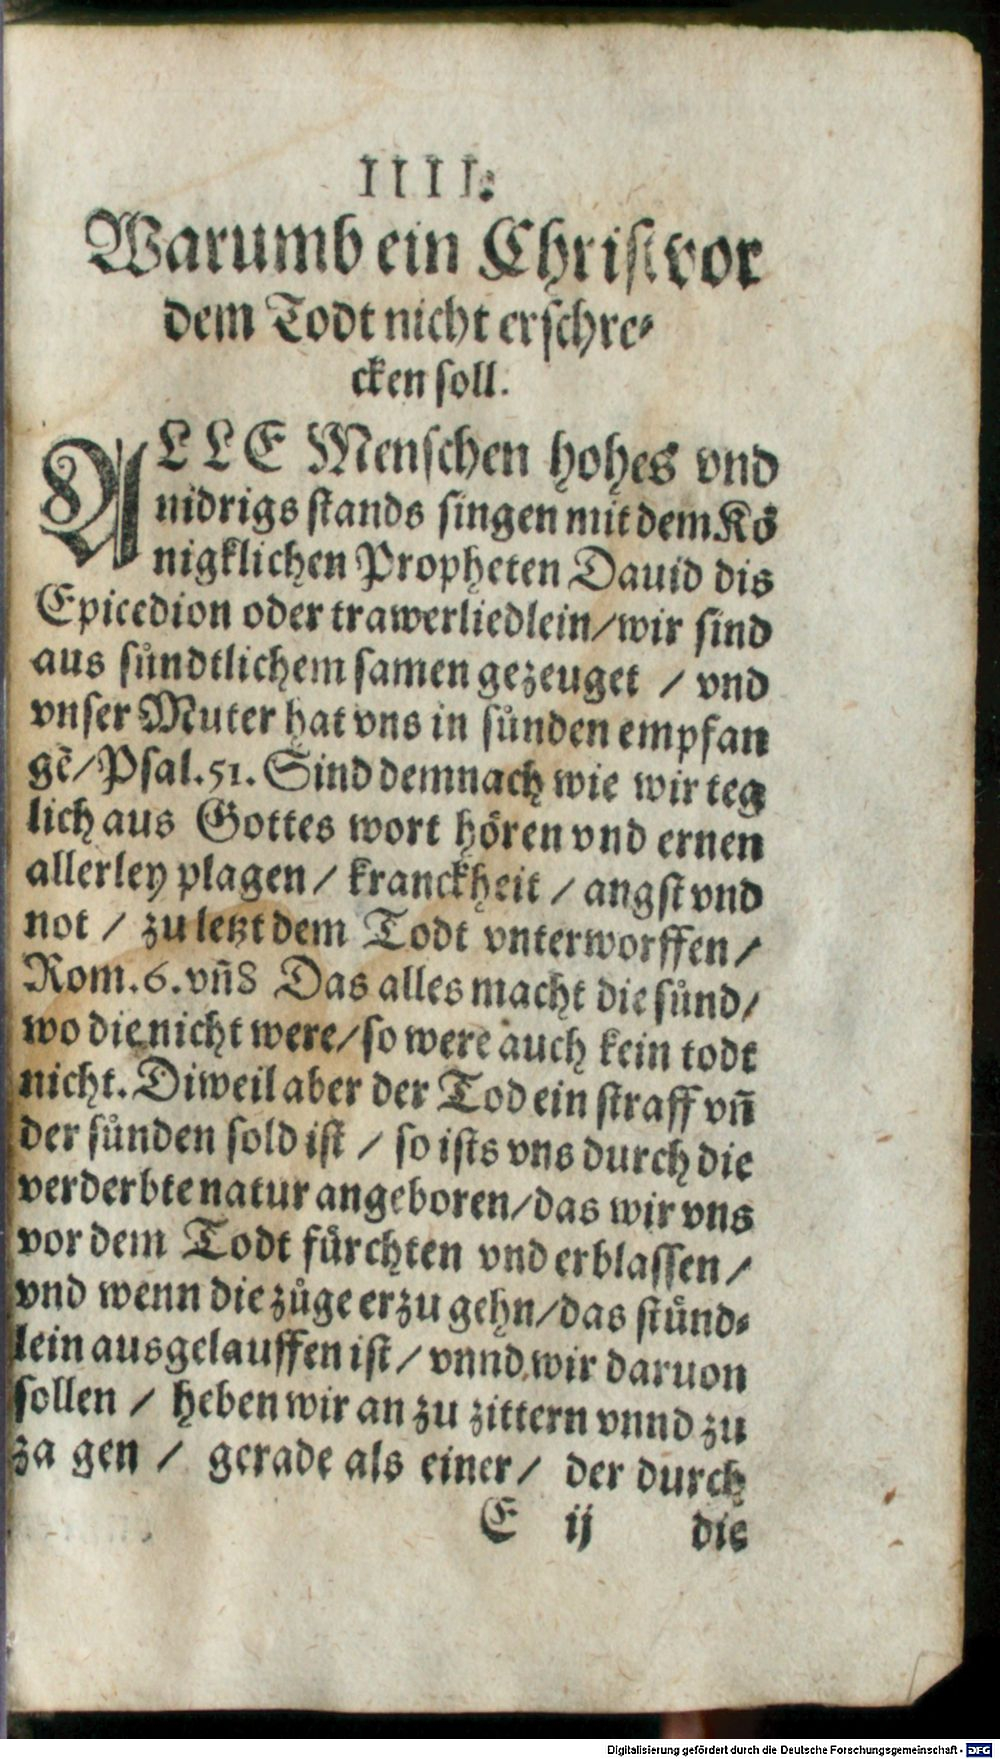 IIII.
Warumb ein Christ vor
dem Todt nicht erschre⸗
cken soll.
ALLE Menschen hohes vnd
nidrigs stands singen mit dem Kö
nigklichen Propheten Dauid dis
Epicedion oder trawerliedlein/wir sind
aus sündtlichem samen gezeuget / vnd
vnser Muter hat vns in sünden empfan
gẽ/Psal.51. Sind demnach wie wir teg
lich aus Gottes wort hören vnd ernen
allerley plagen / kranckheit / angst vnd
not / zu letzt dem Todt vnterworffen /
Rom.6.vñ8 Das alles macht die sünd/
wo die nicht were/so were auch kein todt
nicht. Diweil aber der Tod ein straff vñ
der sünden sold ist / so ists vns durch die
verderbte natur angeboren/das wir vns
vor dem Todt fürchten vnd erblassen /
vnd wenn die züge erzu gehn/das stünd⸗
lein ausgelauffen ist / vnnd wir daruon
sollen / heben wir an zu zittern vnnd zu
za gen / gerade als einer / der durch
E ij die
Digitalisierung gefördert durch die Deutsche Forschungsgemeinschaft - DFG